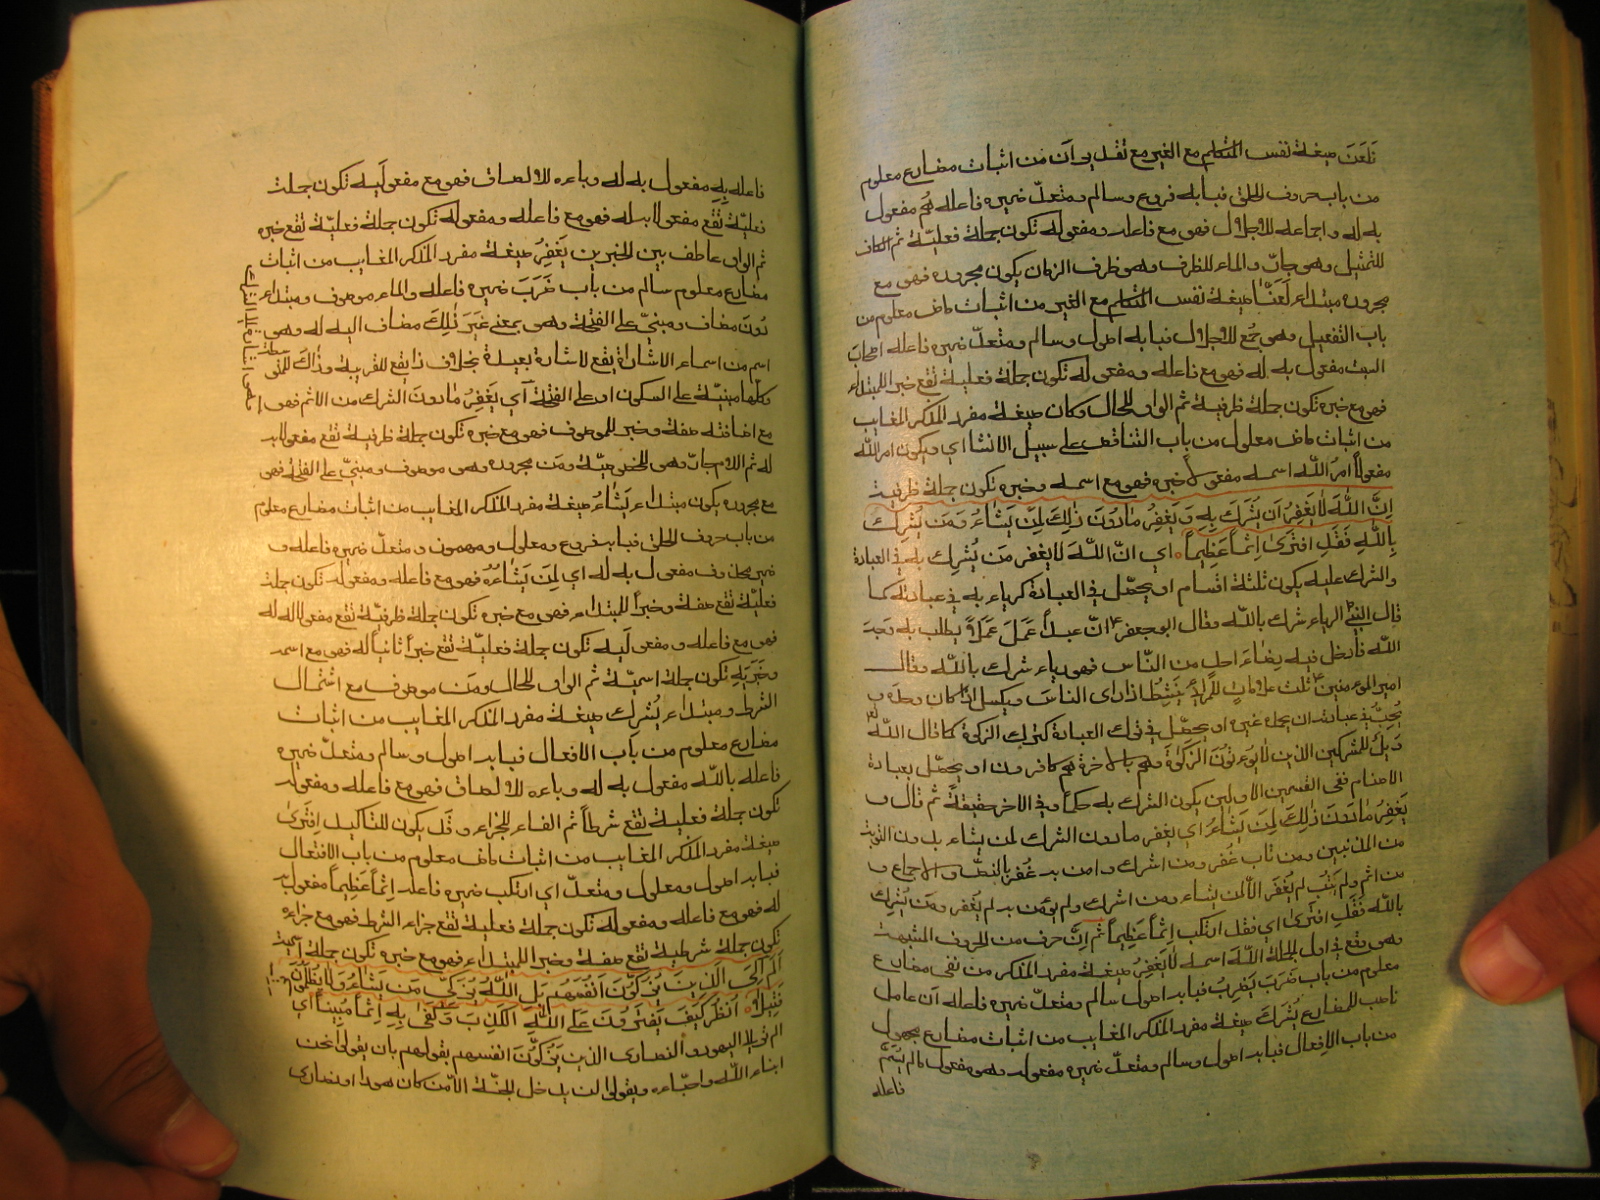 نَلعَنَ صيغة نفس المتكلم مع الغير مع تقدير اَن من اثبات مضارع معلوم
من باب حروف الحلق فبابه فروع وسالم ومتعدّ ضميره فاعله هُم مفعول
به له واجماعه للاجلال فهو مع فاعله ومفعوله تكون جملة فعليّة ثم الكاف
للتمثيل وهو جارّ والماء للظرف وهو ظرف الزمان يكون مجروره فهو مع
مجروره مبتداء لَعَنّا صيغة نفس المتكلم مع الغير من اثبات ماض معلوم من
باب التفعيل وهو جمع للاجلال فبابه اصول وسالم ومتعدّ ضميره فاعله اصحاب
السبت مفعول به له فهو مع فاعله ومفعوله تكون جملة فعلية تقع خبر اللمبتداء
فهو مع خبره تكون جملة ظرفية ثم الواو للحال وكان صيغة مفرد المذكر المغايب
من اثبات ماض معلول من باب الناقص على سبيل الانشا اي ويكون امر اللّه
مفعولاً امرُ اللّه اسمه مفعولا خبره فهو مع اسمه وخبره تكون جملة ظرفية
اِنَّ اللّٰهَ لَا يَغفِرُ اَن يُشرَكَ بِهِ وَ يَغفِرُ مَا دُونَ ذٰلِكَ لِمَن يَشَاءُ وَمَن يُشرِك
بِاللّٰهِ فَقَدِ افتَرىٰ اِثماً عَظِيماً ٥ اي انّ اللّٰهَ لا يغفر مَن يُشرِك به في العبادة
والشرك عليه يكون ثلثة اقسام او يحصّل في العبادة كرياء به في عبادته كما
قال النبيّ الرياء شرك باللّه وقال ابو جعفر انّ عبداً عَمَلَ عَمَلاً يطلب به وَجهَ
اللّه فادخل فيه رِضاءَ احد من النّاس فهو رياء شرك باللّه وقال
امير المؤمنين ثلث علامات للمرائي يَنشِطُ اذا رای الناسَ ويكسل اذا كان وحده و
يُحِبّ في عبادته ان يحمد غيره او يحصّل في ترك العبادة كترك الزكوة كما قال اللّه
وَيلٌ للمشركين الذين لا يوءتُونَ الزَكوٰةَ وهم بالاخرة هم كافرون او يحصّل بعبادة
الاصنام ففي القسمين الاولين يكون الشرك به حكماً وفي الاخر حقيقةً ثم قال و
يَغفِرُ مَا دُونَ ذٰلِكَ لِمَن يَشَاءُ اي يغفر ما دون الشرك لمن يشاء بدون التوبة
من المذنبين ومن تاب غُفر ومن اشرك وامن بد غُفر بالنصّ والاجماع و
من اثم ولم يَتُب لم يُغفَر الّا لمن يشاء ومن اشرك ولم يؤمن بد لم يغفر ومَن يُشرِك
باللّه فَقَدِ افترىٰ اي فقد ارتكب اِثماً عَظِيماً ثم اِنَّ حرف من الحروف المشبهة
وهو يقع في اول الجملة اللّه اسمه لَا يَغفِرُ صيغة مفرد المذكر من نفي مضارع
معلوم من باب ضَرَبَ يَضرِبُ فبابه اصول سالم ومتعدّ ضميره فاعله اَن عامل
ناصب للمضارع يُشرَكَ صيغة مفرد المذكر المغايب من اثبات مضارع مجهول
من باب الاِفعال فبابه اصول وسالم ومتعدّ ضميره مفعوله وهو مفعول مالم يُسَمَّ
فاعله
فاعله بِهِ مفعول به له وباءه للالصاق فهو مع مفعولَيه تكون جملة
فعليّة تقع مفعولا به له فهو مع فاعله ومفعوله تكون جملة فعليّة تقع خبره
ثم الواو عاطف بين الخبرين يَغفِرُ صيغة مفرد المذكر المغايب من اثبات
مضارع معلوم سالم من باب ضَرَبَ ضميره فاعله والماء موصوف ومبتداء
دُونَ مضاف ومبنيّ على الفتحة وهو بمعنى غَيرَ ذٰلِكَ مضاف اليه له وهو
اسم من اسماء الاشارة يقع لاشارة بعيدة بخلاف ذا يقع للقريبة وذاك للمتوسطة
وكلّها مبنيّة على السكون او على الفتحة اَي يَغفِرُ مَا دونَ الشرك من الاثم فهو
ماهو اشارة الا ذلك
مع اضافته صفة وخبر للموصوف فهو مع خبره تكون جملة ظرفية تقع مفعولا به
له ثم اللام جارّ وهو للخصوصيّة ومَن مجروره وهو موصوف ومبنيّ على الفتحة فهو
مع مجروره يكون مبتداء يَشَاءُ صيغة مفرد المذكر المغايب من اثبات مضارع معلوم
من باب حروف الحلق فبابه فروع ومعلول ومهموز ومتعدّ ضميره فاعله و
ضمير محذوف مفعول به له اي لِمَن يَشَاءُهُ فهو مع فاعله ومفعوله تكون جملة
فعليّة تقع صفة وخبراً للمبتداء فهو مع خبره تكون جملة ظرفيّة تقع مفعولا له له
فهو مع فاعله ومفعولَيه تكون جملة فعليّة تقع خبراً ثانياً له فهو مع اسمه
وخَبَرَيهِ تكون جملة اسميّة ثم الواو للحال ومَن موصوف مع اشتمال
الشرط ومبتداء يُشرِك صيغة مفرد المذكر المغايب من اثبات
مضارع معلوم من باب الافعال فبابه اصول وسالم ومتعدّ ضميره
فاعله باللّه مفعول به له وباءه للالصاق فهو مع فاعله ومفعوله
تكون جملة فعلية تقع شرطاً ثم الفاء للجزاء وقد يكون للتاكيد اِفترىٰ
صيغة مفرد المذكر المغايب من اثبات ماض معلوم من باب الافتعال
فبابه اصول ومعلول ومتعدّ اي ارتكب ضميره فاعله اِثماً عَظِيماً مفعول به
له فهو مع فاعله ومفعوله تكون جملة فعلية تقع جزاء الشرط فهو مع جزاءه
تكون جملة شرطية تقع صفة وخبرا للمبتداء فهو مع خبره تكون جملة اسمية
اَلَم تَرَ اِلَى الَّذِينَ يُزَكُّونَ اَنفُسَهُم بَلِ اللّٰهُ يُزَكِّي مَن يَشَاءُ وَلَا يُظلَمُونَ
فَتِيلاً ٥ اُنظُر كَيفَ يَفتَرُونَ عَلَى اللّٰهِ الكَذِبَ وَكَفىٰ بِهِ اِثماً مُبِيناً اي
الم تر الى اليهود والنصارى الذين يُزَكُّونَ انفسهم بقولهم بان يقولوا نحن
ابناء اللّه واحبّاءه ويقولوا لن يدخل الجنّة الّا من كان هودا او نصارى